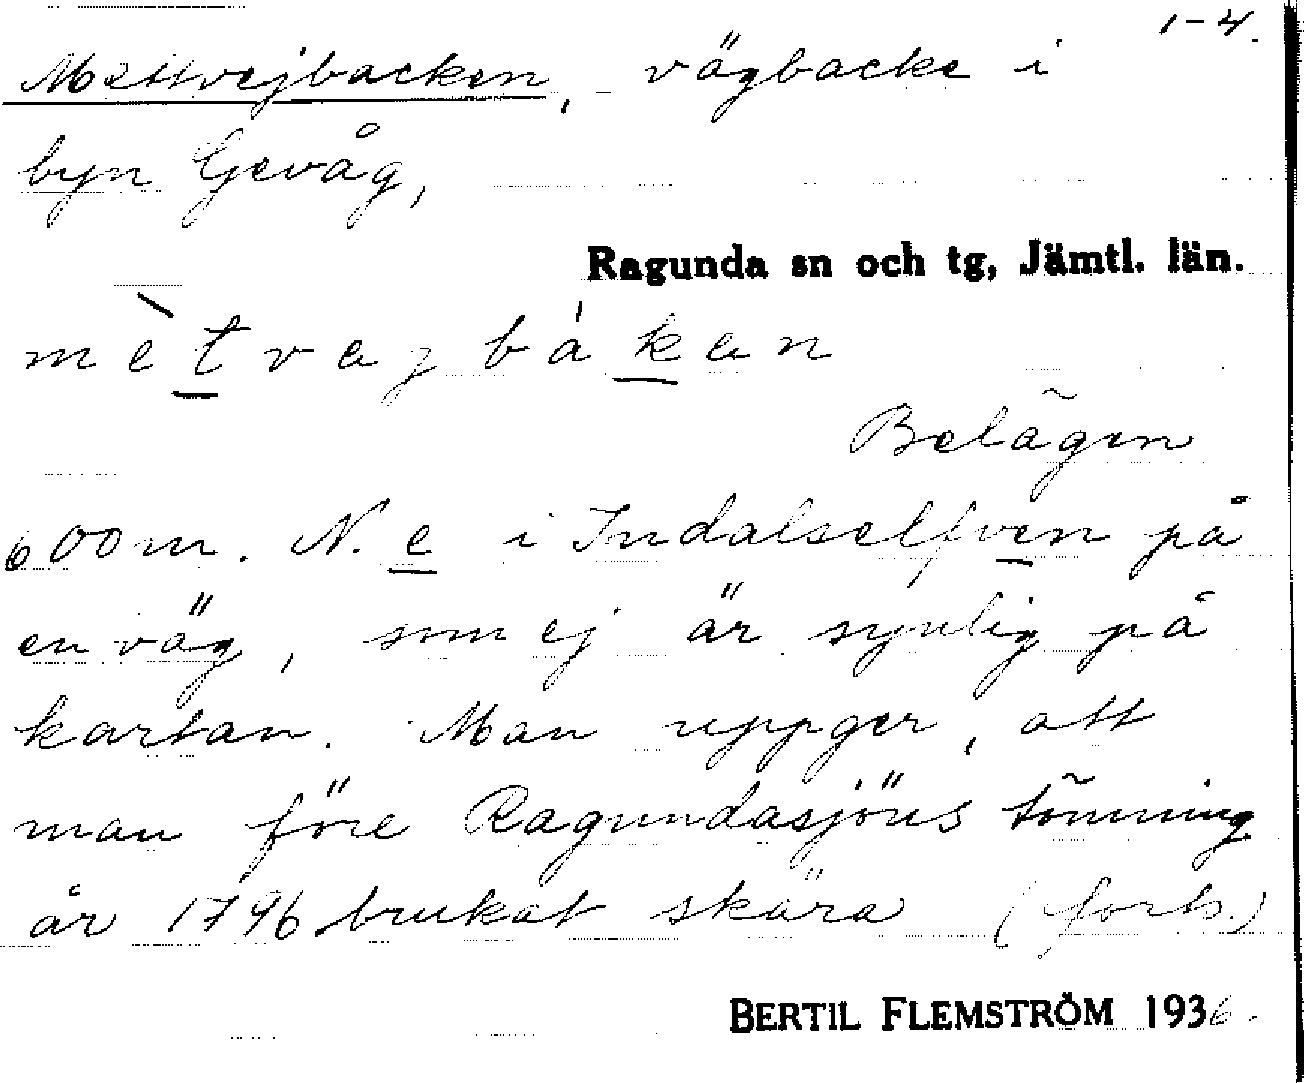 1-4.
Mettvejbacken, vägbacke i
byn Gevåg,
Ragunda sn och tg, Jämtl. län.
mètvazbákan
Belägen
600 m. N. e i Indalselfven på
en väg, som ej är synlig på
kartan. Man uppger, att
man före Ragundasjöns tömning
år 1796 brukat skära (forts.)
BERTIL FLEMSTRÖM 1936.